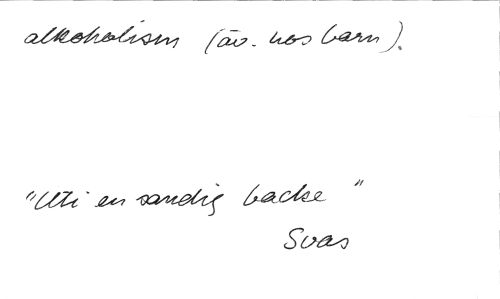 alkoholism (äv. hos barn).
"Uti en sandig backe"
Svas